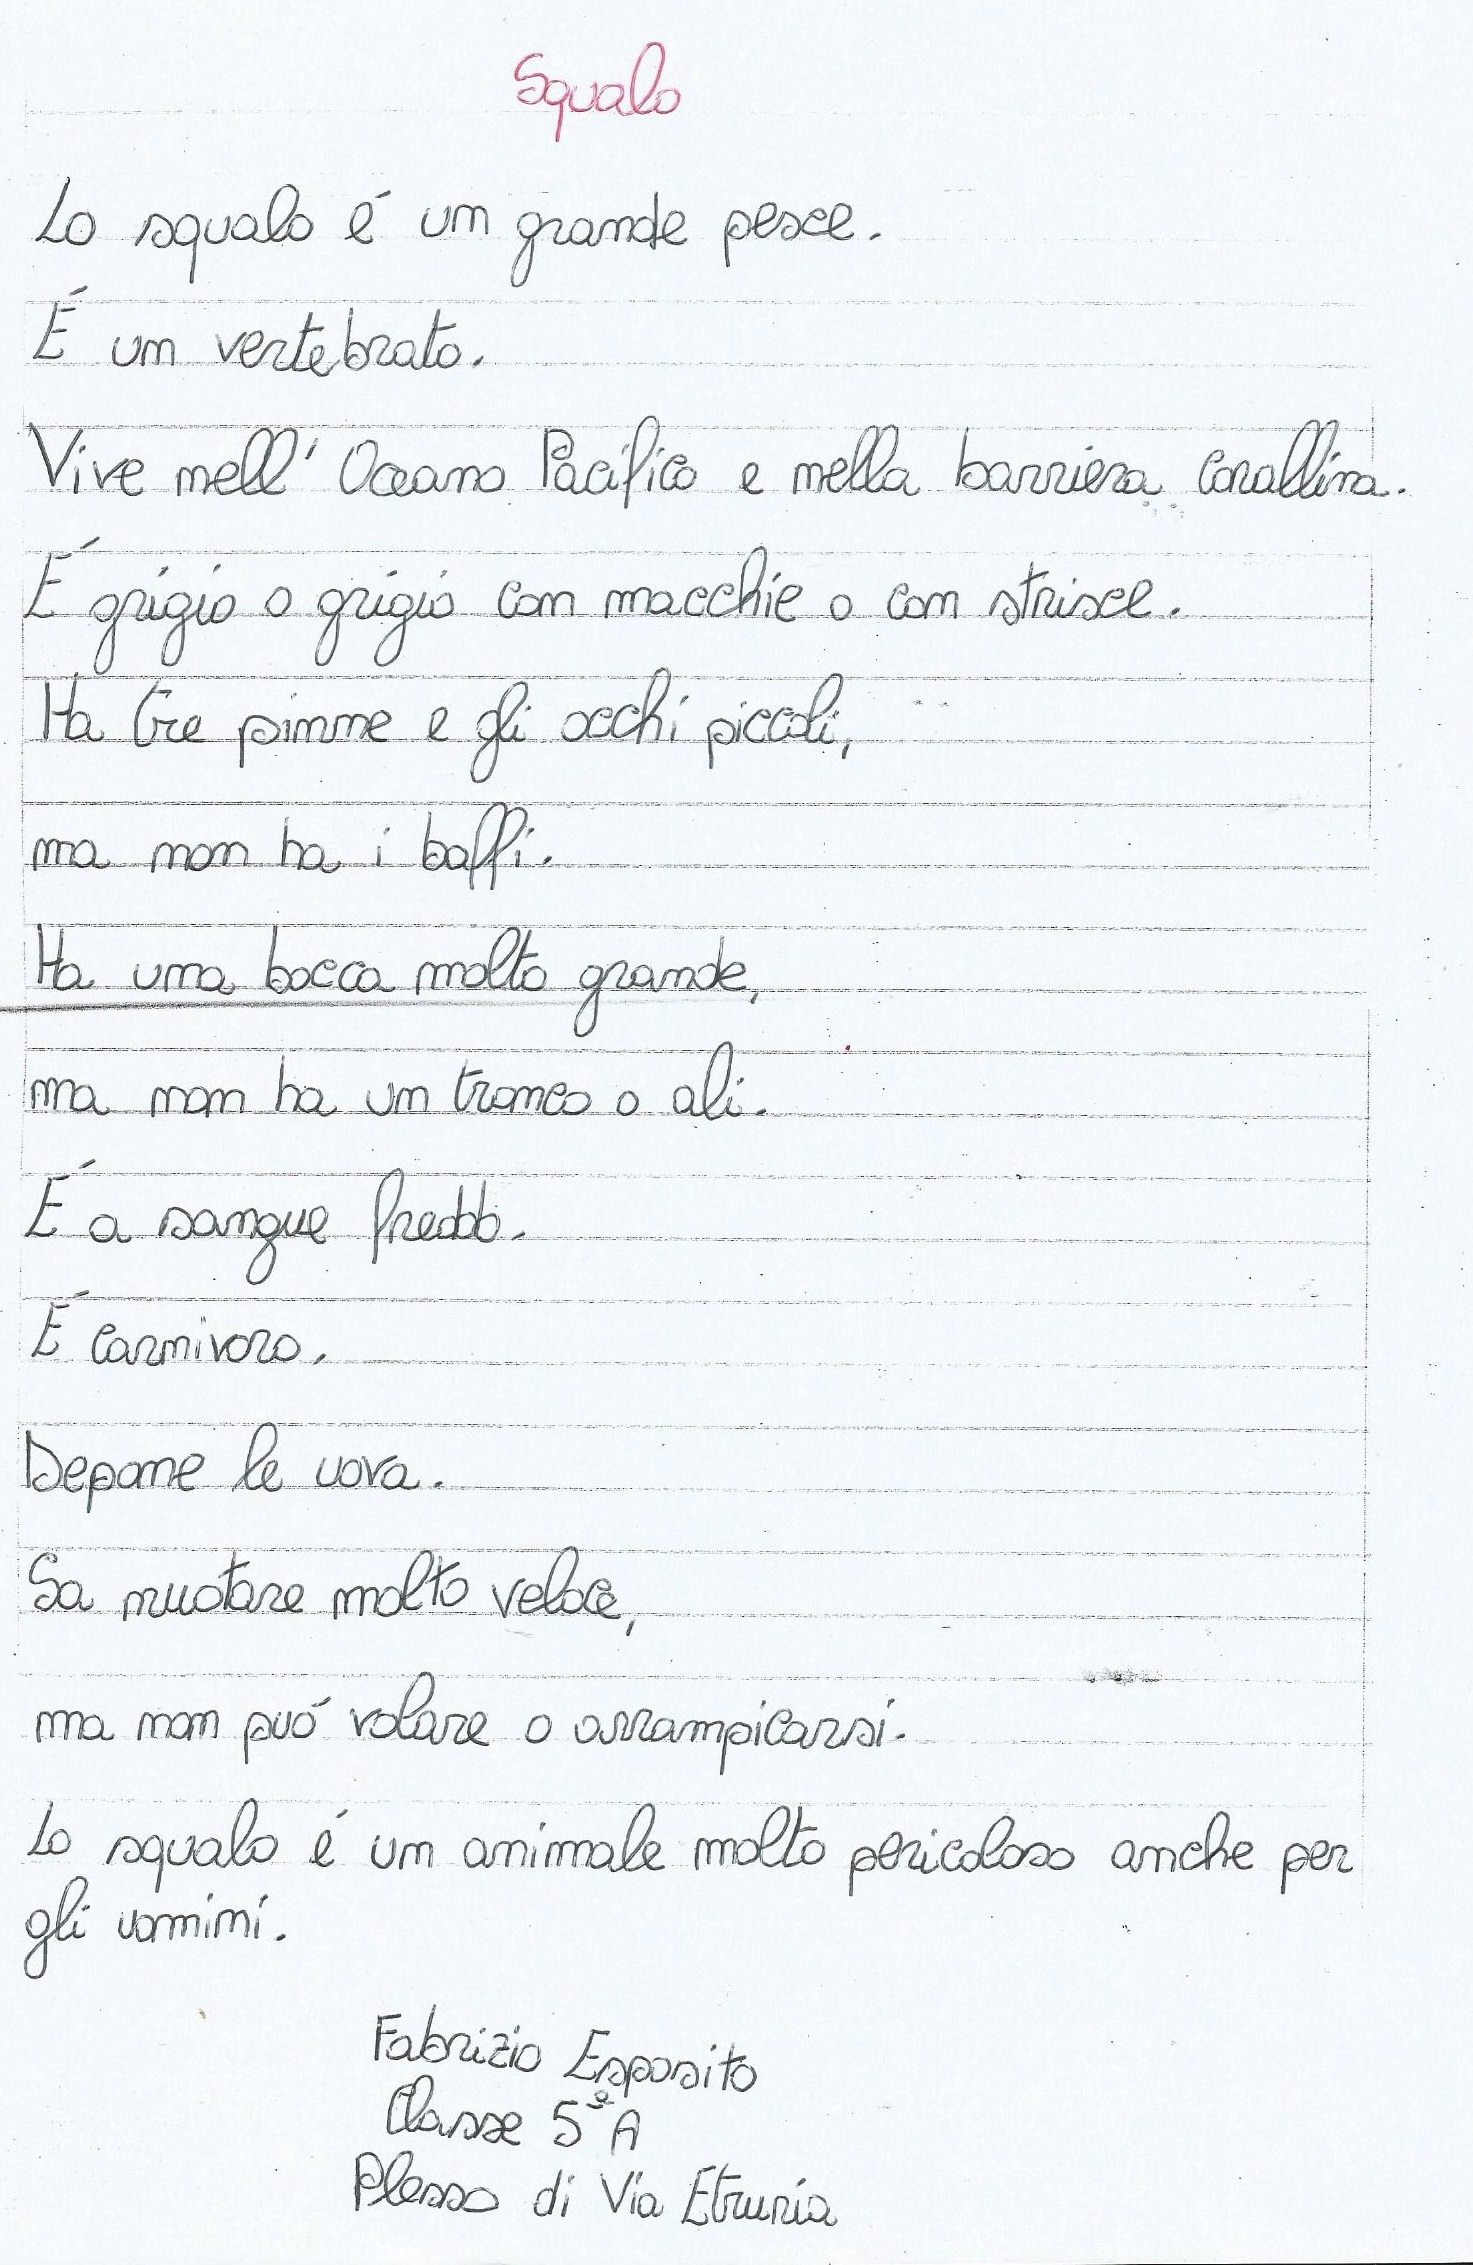 Squalo
Lo squalo é un grande pesce.
É un vertebrato.
Vive nell'Oceano Pacifico e nella barriera corallina.
É grigio o grigio con macchie o con strisce.
Ha tre pinne e gli occhi piccoli,
ma non ha i baffi.
Ha una bocca molto grande,
ma non ha un tronco o ali.
É a sangue freddo.
É carnivoro.
Depone le uova.
Sa nuotare molto veloce,
ma non puó volare o arrampicarsi.
Lo squalo é un animale molto pericoloso anche per
gli uomini.
Fabrizio Esposito
Classe 5ª A
Plesso di Via Etruria